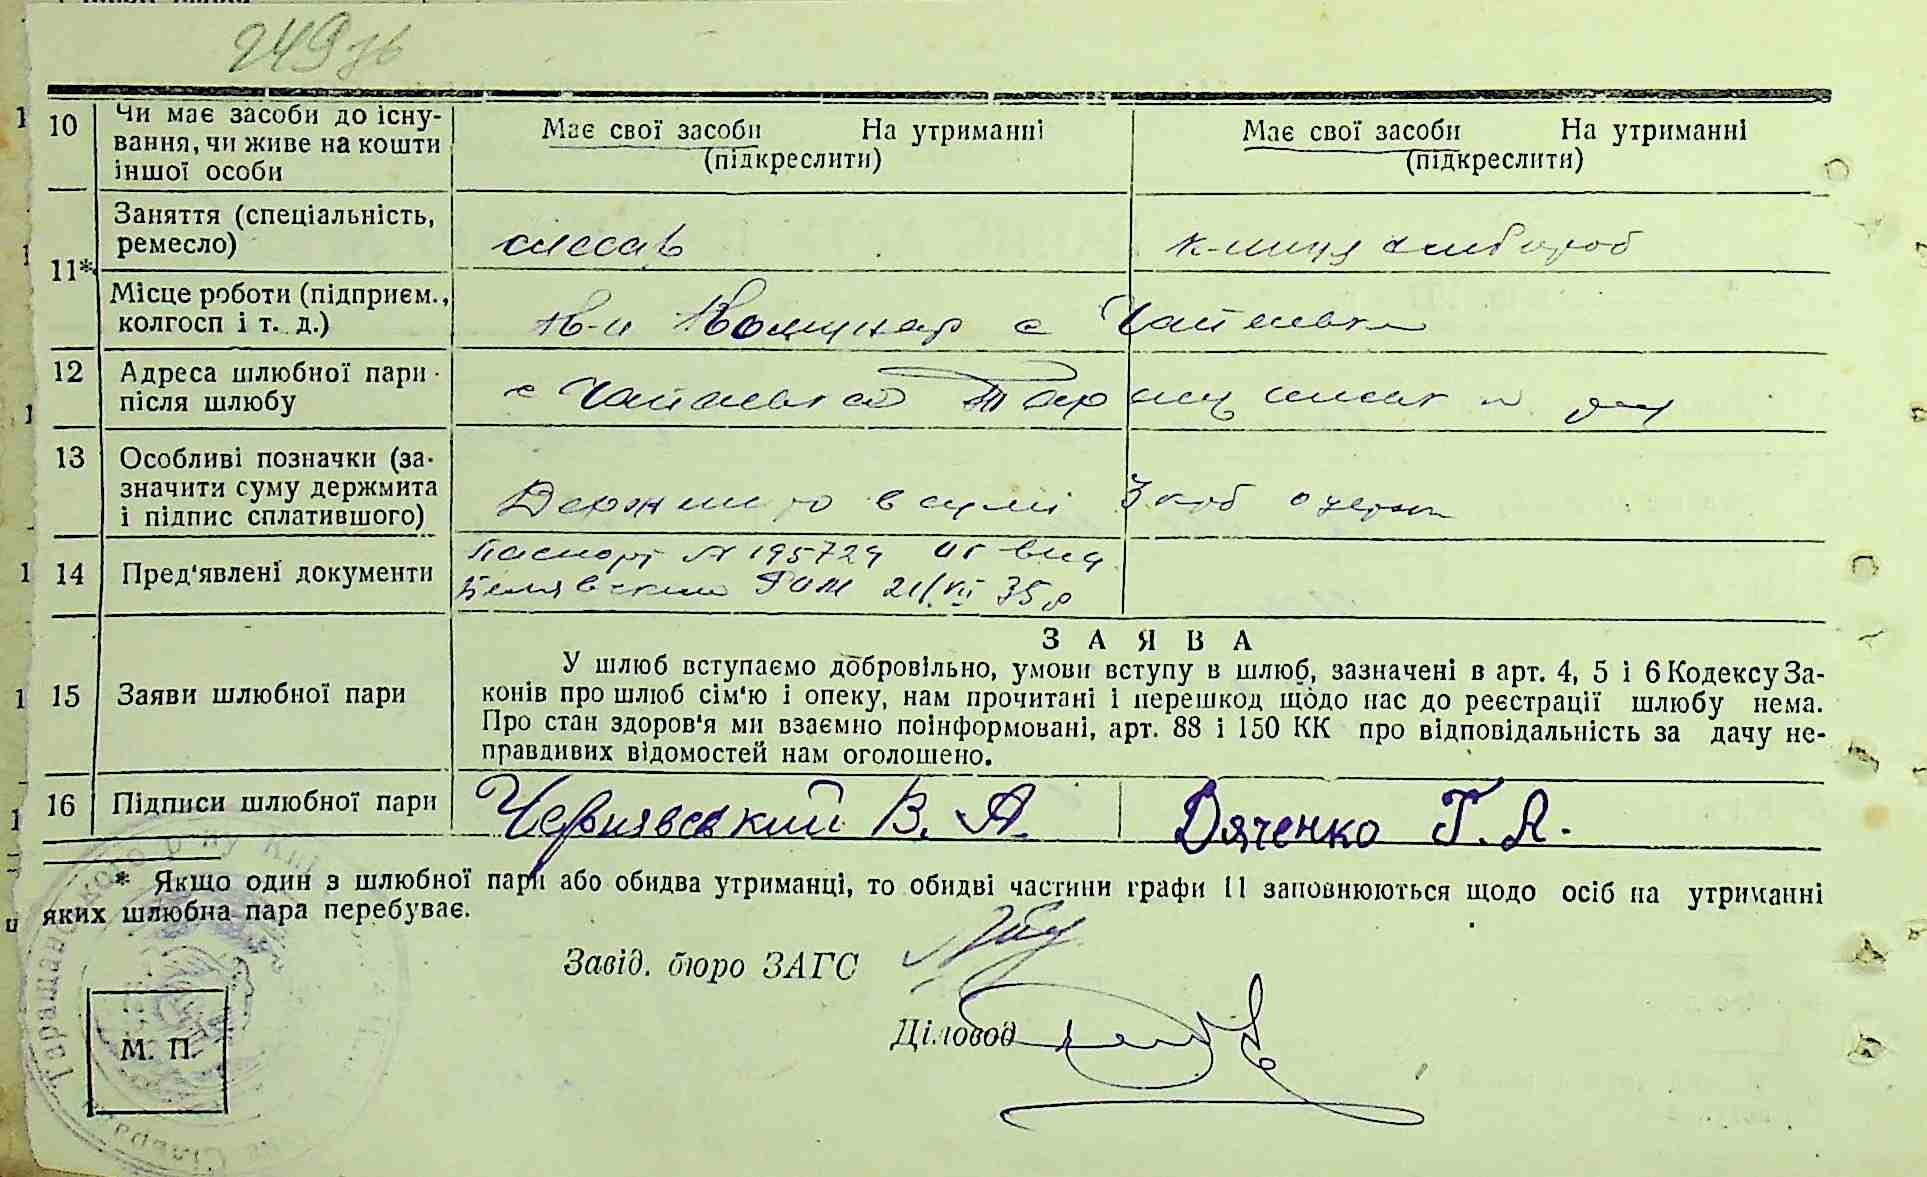 249 зв
10 Чи має засоби до існу-
вання, чи живе на кошти
іншої особи
Має свої засоби На утриманні
(підкреслити)
Має свої засоби На утриманні
(підкреслити)
11* Заняття (спеціальність,
ремесло)
слесар
к-миця хлібороб
Місце роботи (підприєм.,
колгосп і т. д.)
Комунар с
12 Адреса шлюбної пари
після шлюбу
с
13 Особливі позначки (за-
значити суму держмита
і підпис сплатившого)
Держмито в сумі 3 крб
14 Пред'явлені документи
Паспорт № 195724
РОМ 21/VII 35 р
15 Заяви шлюбної пари
ЗАЯВА
У шлюб вступаємо добровільно, умови вступу в шлюб, зазначені в арт. 4, 5 і 6 Кодексу За-
конів про шлюб сім'ю і опеку, нам прочитані і перешкод щодо нас до реєстрації шлюбу нема.
Про стан здоров'я ми взаємно поінформовані, арт. 88 і 150 КК про відповідальність за дачу не-
правдивих відомостей нам оголошено.
16 Підписи шлюбної пари
Чернявський В. А.
Дяченко Г. А.
* Якщо один з шлюбної пари або обидва утриманці, то обидві частини графи 11 заповнюються щодо осіб на утриманні
яких шлюбна пара перебуває.
Завід. бюро ЗАГС
Діловод
М. П.